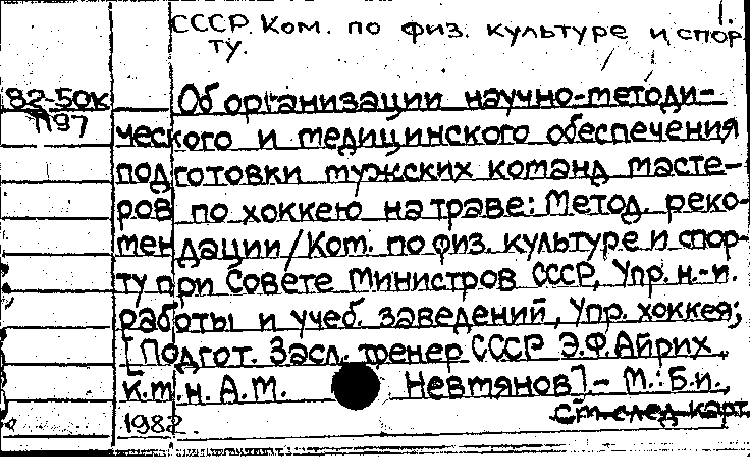 1.
СССР. Ком. по физ. культуре и спор-
ту.
82-50к Об организации научно-методи-
П97 ческого и медицинского обеспечения
подготовки мужских команд масте-
ров по хоккею на траве: Метод. реко-
мендации/Ком. по физ. культуре и спор-
ту при Совете Министров СССР, Упр. н.-и.
работы и учеб. заведений, Упр. хоккея;
[Подгот. Засл. тренер СССР Э.Ф.Айрих,
к.т.н. А.М. Невмянов]- М.: Б.и.,
см след карт
1982.